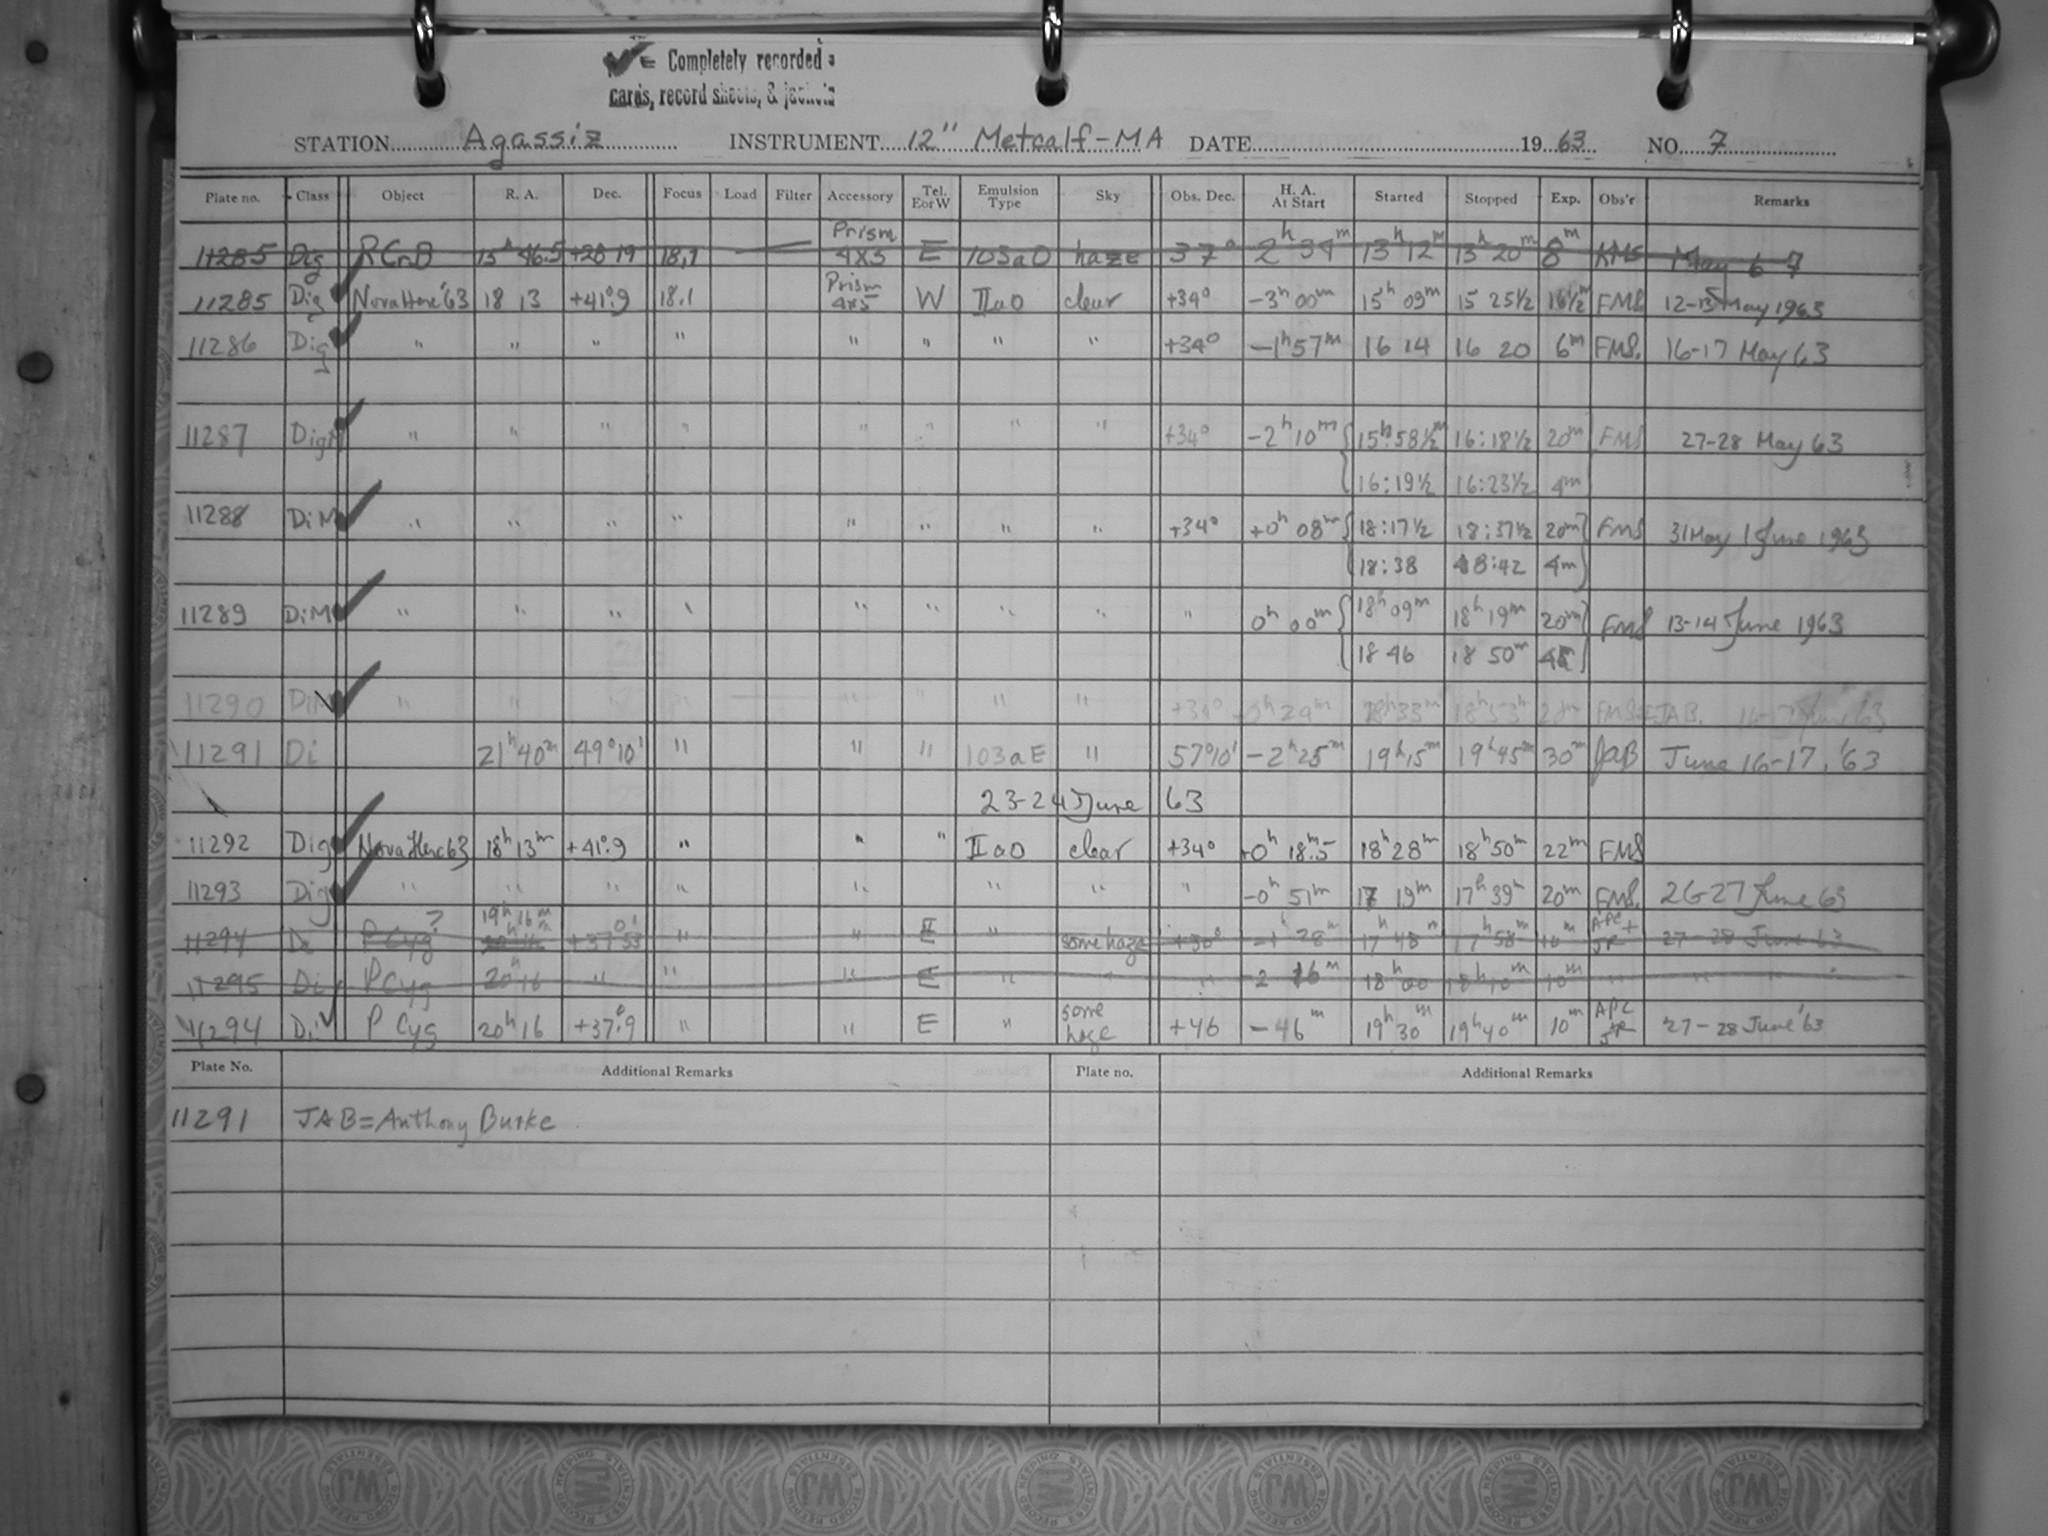 ✓ = Completely recorded
cards, record sheets, & jackets
STATION Agassiz INSTRUMENT 12" Metcalf-MA DATE 1963 NO. 7
Plate no. Class Object R. A. Dec. Focus Load Filter Accessory Tel. E or W Emulsion Type Sky Obs. Dec. H. A. At Start Started Stopped Exp. Obs'r Remarks
11285 Dig R CrB 15h 46.5 +28 19 18.1 Prism 4x5 E 103aO haze 37° 2h 34m 13h 12m 13h 20m 8m KMS May 6 7
11285 Dig ✓ Nova Herc '63 18 13 +41°.9 18.1 Prism 4x5 W IIaO clear +34° -3h 00m 15h 09m 15 25½ 16½m FMS 12-13 May 1963
11286 Dig ✓ " " " " " " " " +34° -1h 57m 16 14 16 20 6m FMS. 16-17 May 63
11287 DigM ✓ " " " " " " " " +34° -2h 10m { 15h:58½m 16:18½ 20m FMS 27-28 May 63
16:19½ 16:23½ 4m
11288 DiM ✓ " " " " " " " " +34° +0h 08m { 18:17½ 18:37½ 20m } FMS 31 May 1 June 1963
18:38 18:42 4m
11289 DiM ✓ " " " " " " " " " 0h 00m { 18h 09m 18h 19m 20m } FMS 13-14 June 1963
18 46 18 50m 4m
11290 DiM ✓ " " " " " " " +34° 0h 29m 18h 33m 18h 53m 20m FMS JAB. 16-17 June 63
11291 Di 21h 40m 49°10' " " " 103aE " 57°10' -2h 25m 19h 15m 19h 45m 30m JAB June 16-17, '63
23-24 June 63
11292 Dig ✓ Nova Herc 63 18h 13m +41°.9 " " " IIaO clear +34° +0h 18m.5 18h 28m 18h 50m 22m FMS
11293 Dig ✓ " " " " " " " " -0h 51m 17 19m 17h 39m 20m FMS. 26-27 June 63
11294 Di P Cyg? 19h 16m +37° 53' " " E " some haze +30° -1h 28m 17h 48m 17h 58m 10m APC + JR 27-28 June 63
11295 Di P Cyg 20h 16 " " " E " " " -2 16m 18h 00 18h 10m 10m " " " "
11294 Di ✓ P Cyg 20h 16 +37°.9 " " E " some haze +46 -46m 19h 30m 19h 40m 10m APC JR 27-28 June '63
Plate No. Additional Remarks Plate no. Additional Remarks
11291 JAB = Anthony Burke